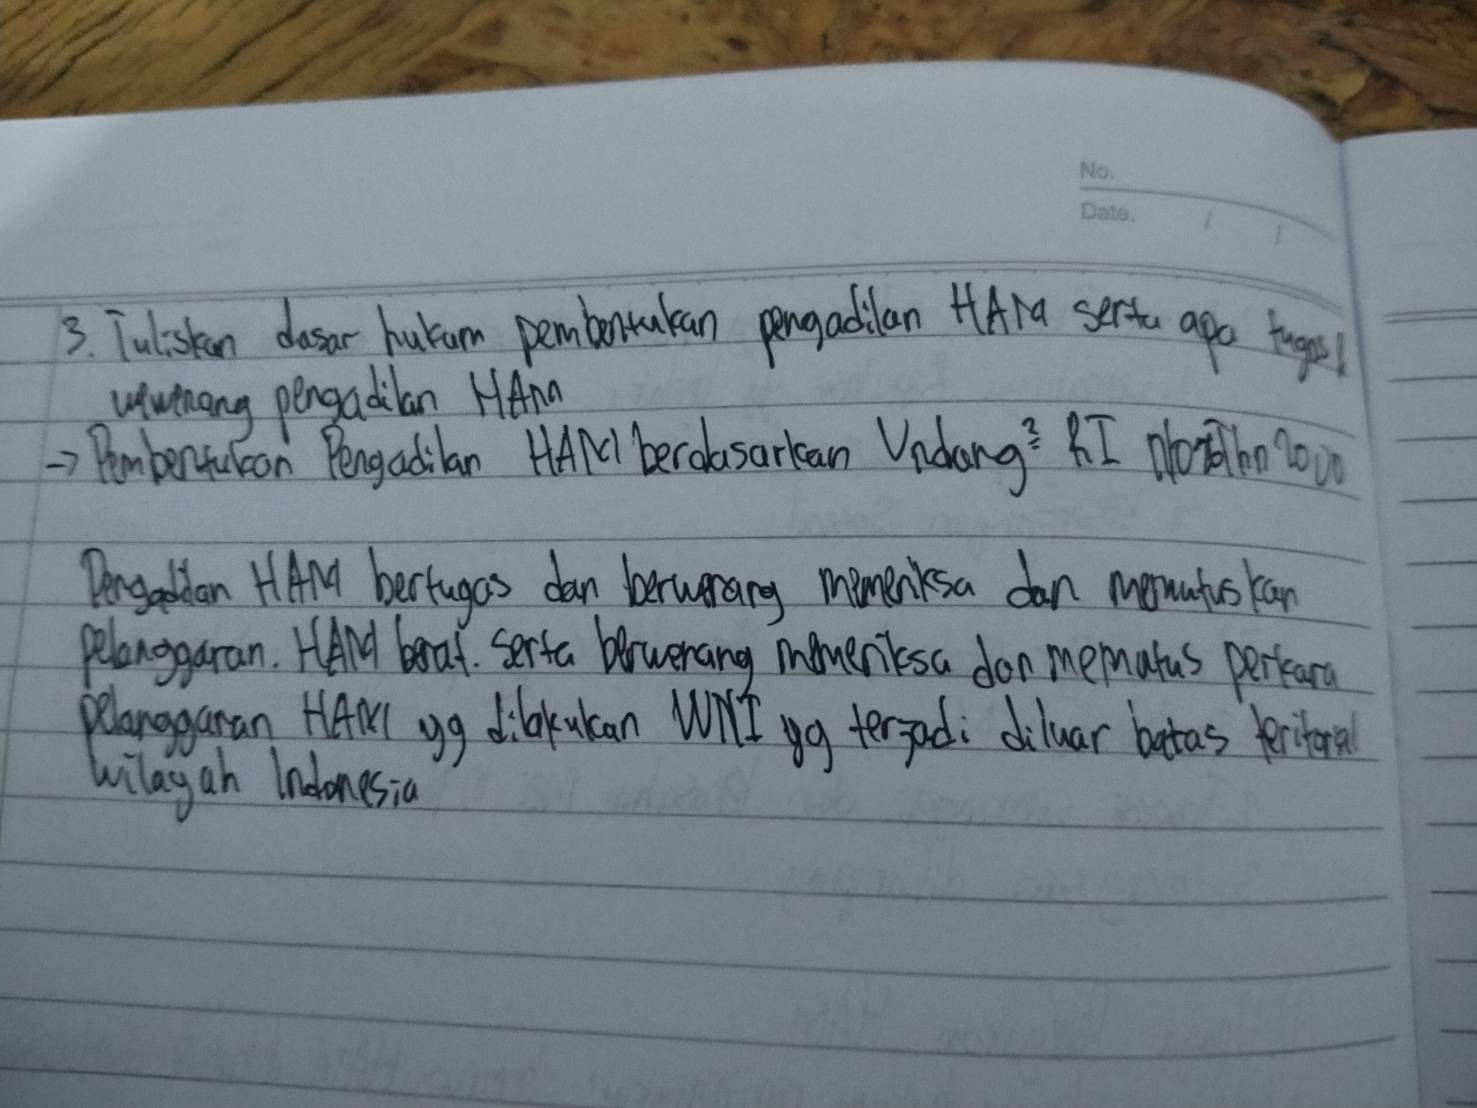 No.
Date. / /
3. Tuliskan dasar hukum pembentukan pengadilan HAM serta apa tugas &
wewenang pengadilan HAM
→ Pembentukan Pengadilan HAM berdasarkan Undang² RI No 26 Thn 2000
Pengadilan HAM bertugas dan berwenang memeriksa dan memutuskan
pelanggaran. HAM berat. serta berwenang memeriksa dan mematus perkara
pelanggaran HAM yg dilakukan WNI yg terjadi diluar batas teritoral
wilayah Indonesia